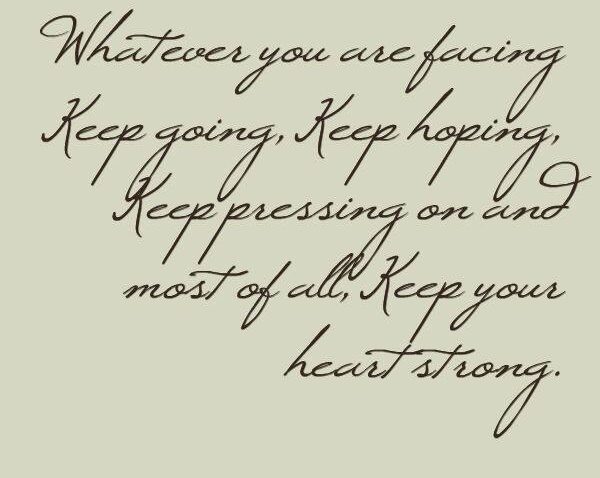 Whatever you are facing
Keep going, Keep hoping,
Keep pressing on and
most of all, Keep your
heart strong.